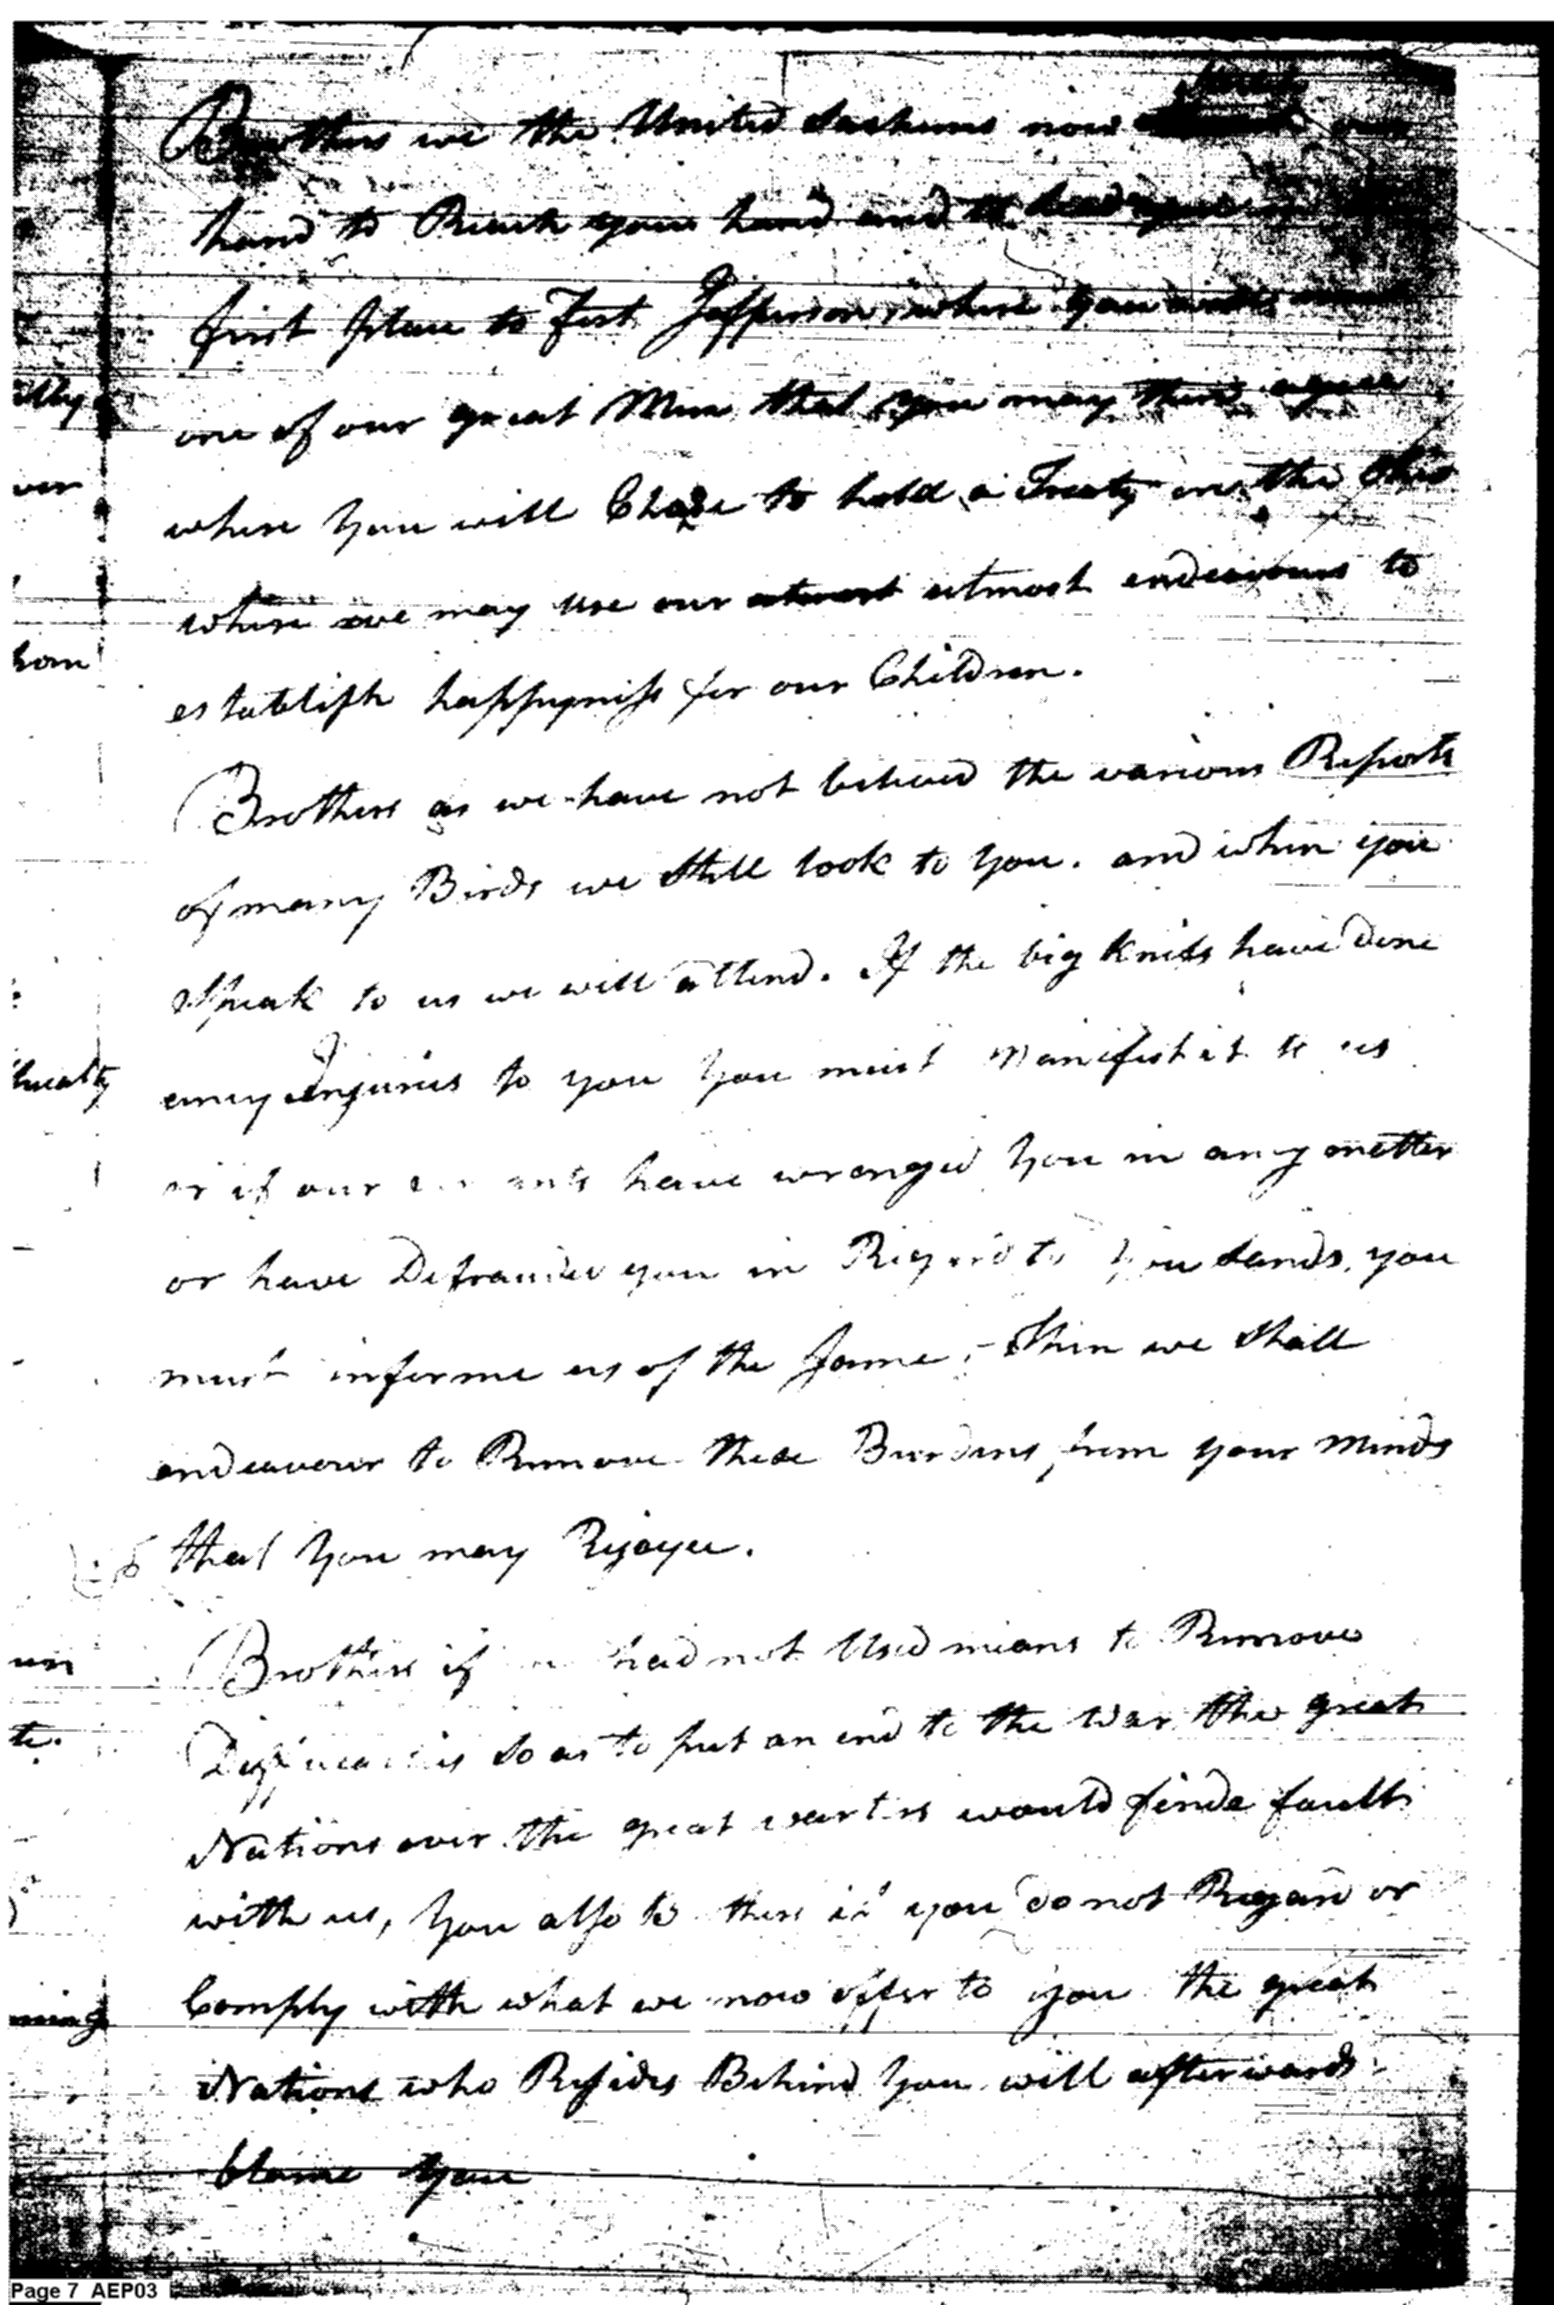 Brothers we the United Sachims now strech our
hand to Reach your hand and to lead you in the
first place to Fort Jefferson, where you will meet
one of our great Men that you may then agree
where you will Chose to hold a Treaty on the Ohio
where we may use our utmost endeavours to
establish happyniss for our Children.
Brothers as we have not believed the various Reports
of many Birds we Still look to you. and when you
Speak to us we will attend. If the big knifs have done
any Injuries to you you must manifest it to us
or if our have wronged you in any matter
or have Defrauded you in Regard to your Lands, you
must informe us of the Same, - Then we Shall
endeavour to Remove these Burdens from your minds
that you may Rejoyce.
Brothers if we had not Used means to Remove
so as to put an end to the War the great
Nations over the great waters would finde fault
with us, you also to there if you do not Regard or
Comply with what we now offer to you the great
Nations who Resides Behind you will afterwards
blame you
ver
hom
un
te.
ning
Page 7 AEP03